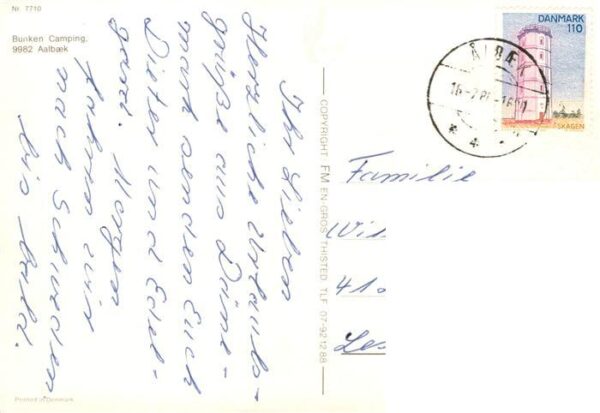 Nr. 7710
Bunken Camping.
9982 Aalbæk
Ihr Lieben
Herzliche Urlaub-
grüße aus Däne-
mark senden Euch
Dieter und Edel-
gard. Morgen
fahren wir
nach Schweden
bis bald.
Printed in Denmark
COPYRIGHT FM EN-GROS THISTED TLF 07-92 12 88
DANMARK
110
SKAGEN
ÅLBÆK
Familie
Wis
41
Les